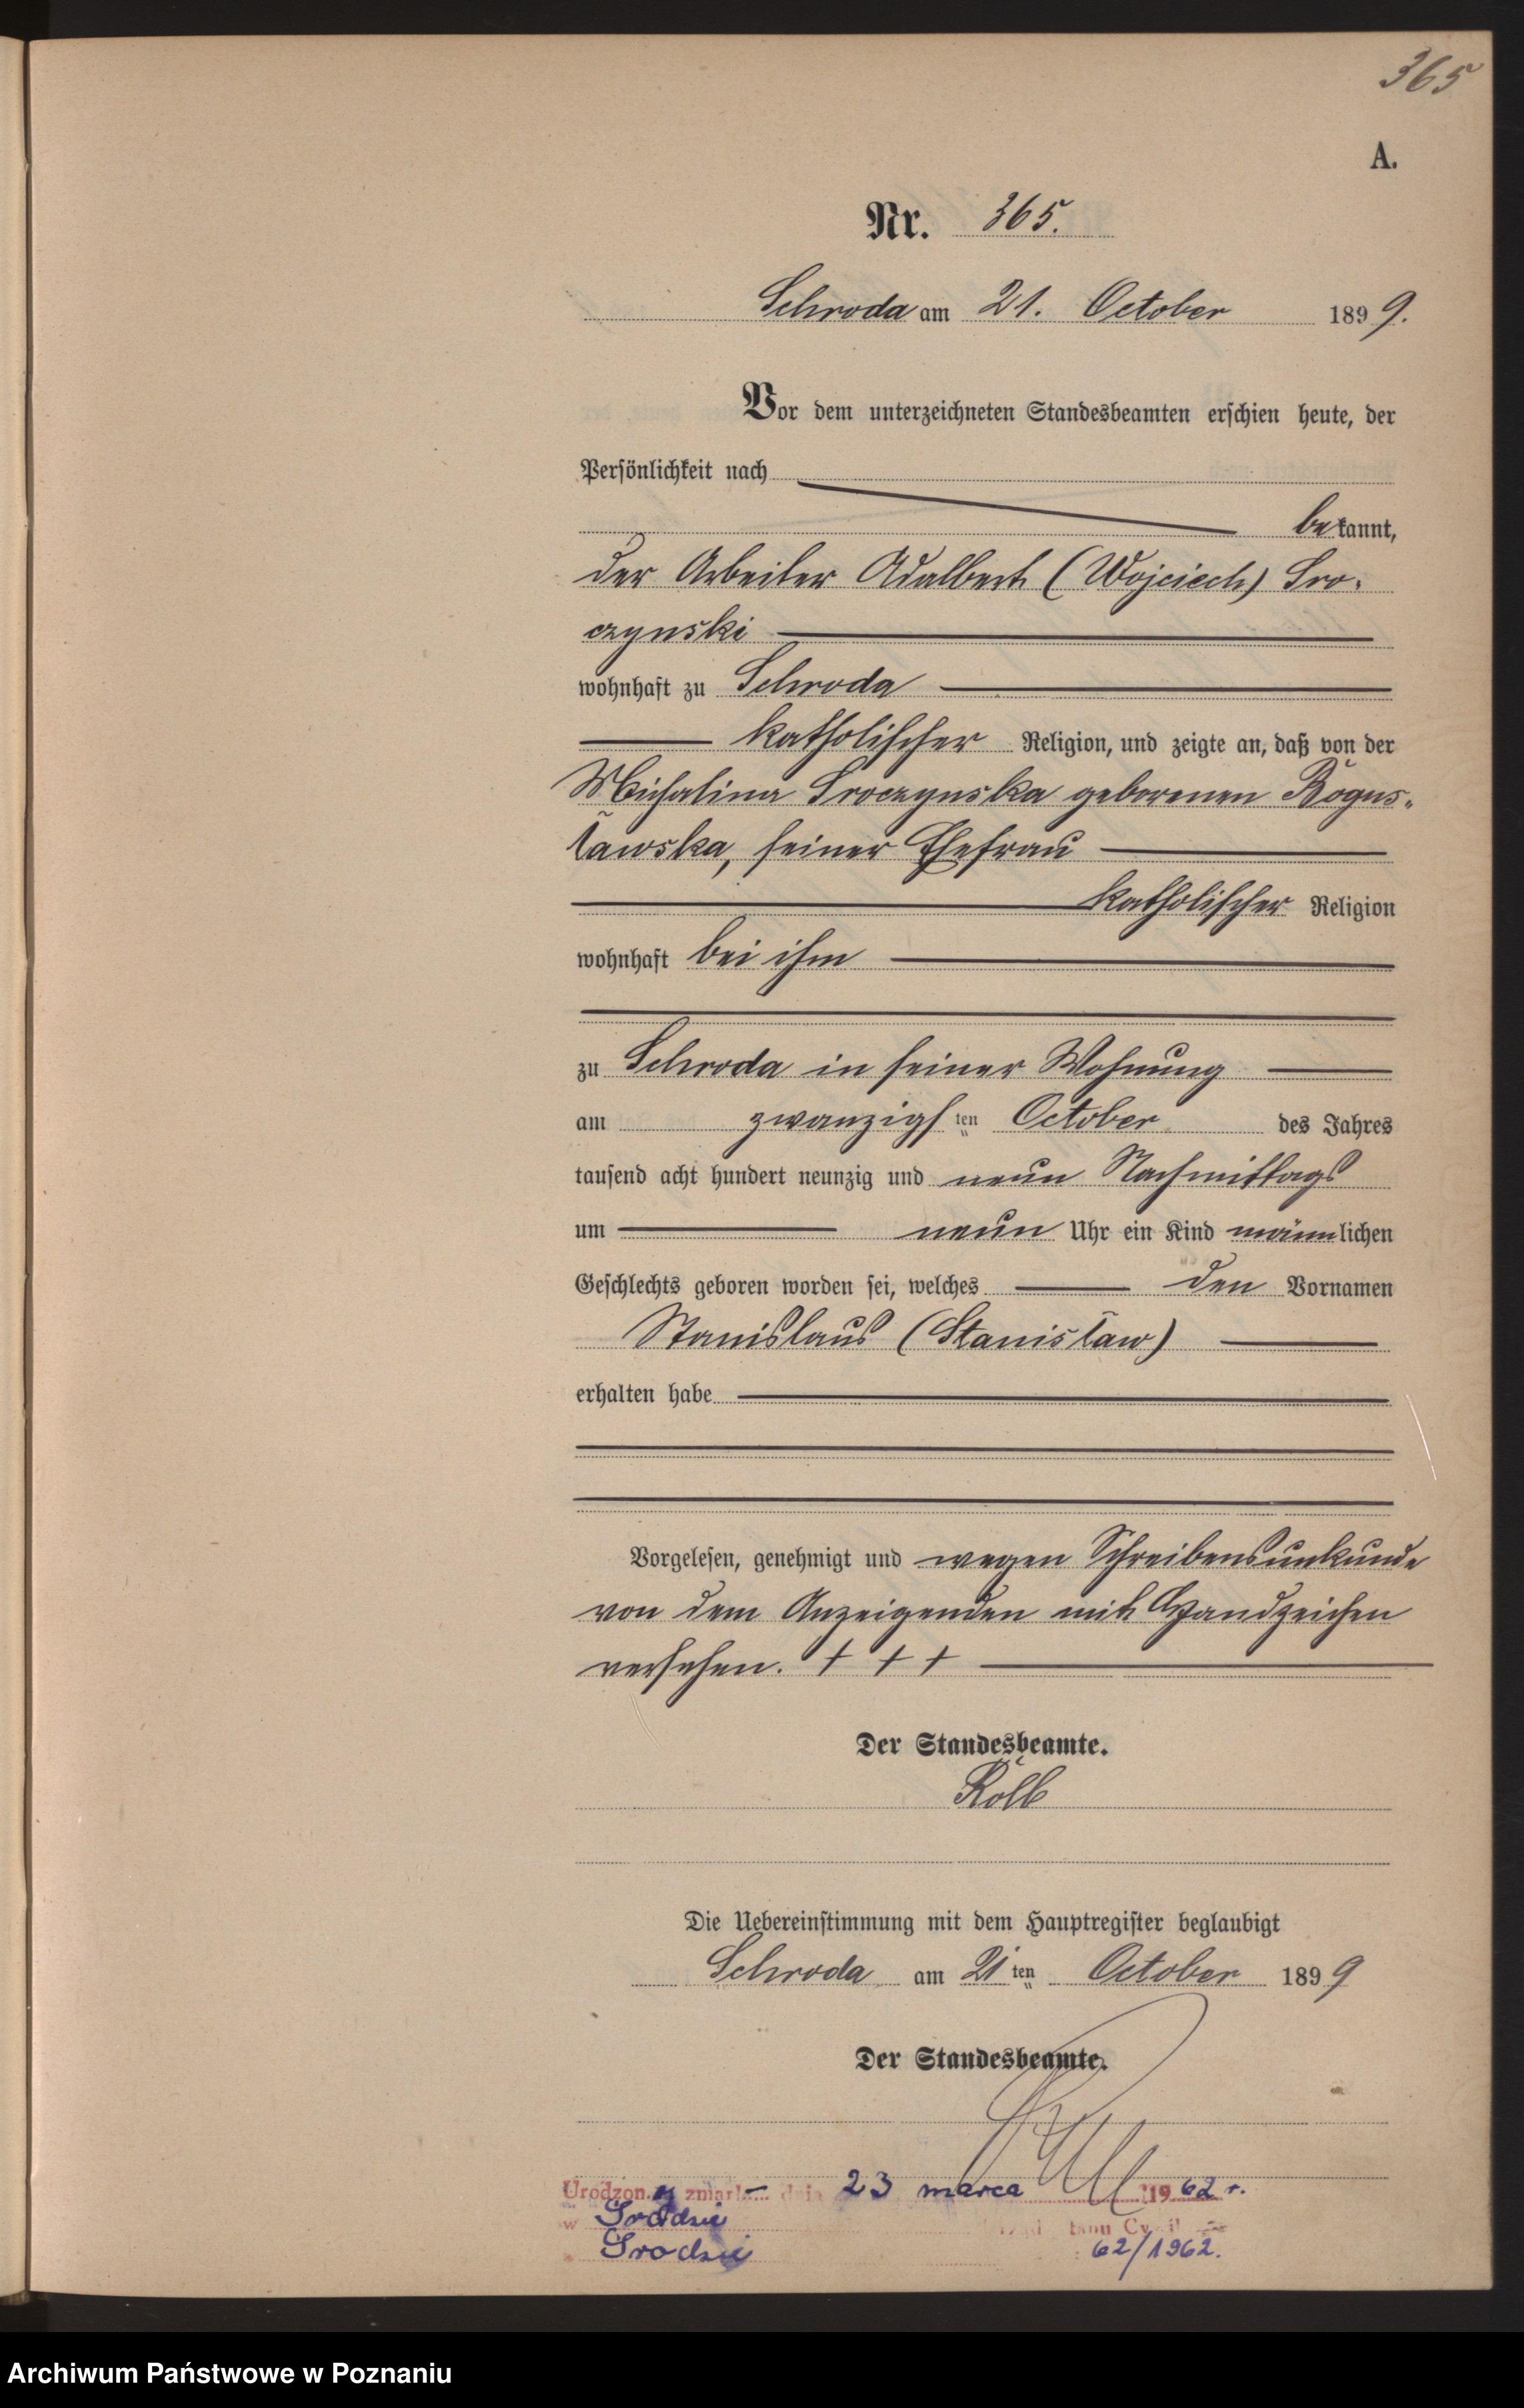 365
A.
Nr. 365.
Schroda am 21. October 1899.
Vor dem unterzeichneten Standesbeamten erschien heute, der
Persönlichkeit nach
bekannt,
der Arbeiter Adalbert (Wojciech) Sro-
czynski
wohnhaft zu Schroda
katholischer Religion, und zeigte an, daß von der
Michalina Sroczynska geborenen Bogus-
ławska, seiner Ehefrau
katholischer Religion
wohnhaft bei ihm
zu Schroda in seiner Wohnung
am zwanzigsten October des Jahres
tausend acht hundert neunzig und neun Nachmittags
um neun Uhr ein Kind männlichen
Geschlechts geboren worden sei, welches den Vornamen
Stanislaus (Stanisław)
erhalten habe
Vorgelesen, genehmigt und wegen Schreibensunkunde
von dem Anzeigenden mit Handzeichen
versehen. + + +
Der Standesbeamte.
Kolb
Die Uebereinstimmung mit dem Hauptregister beglaubigt
Schroda am 21ten October 1899
Der Standesbeamte.
Urodzony zmarł dnia 23 marca 1962 r.
w Środzie
Środzie 62/1962.
Archiwum Państwowe w Poznaniu